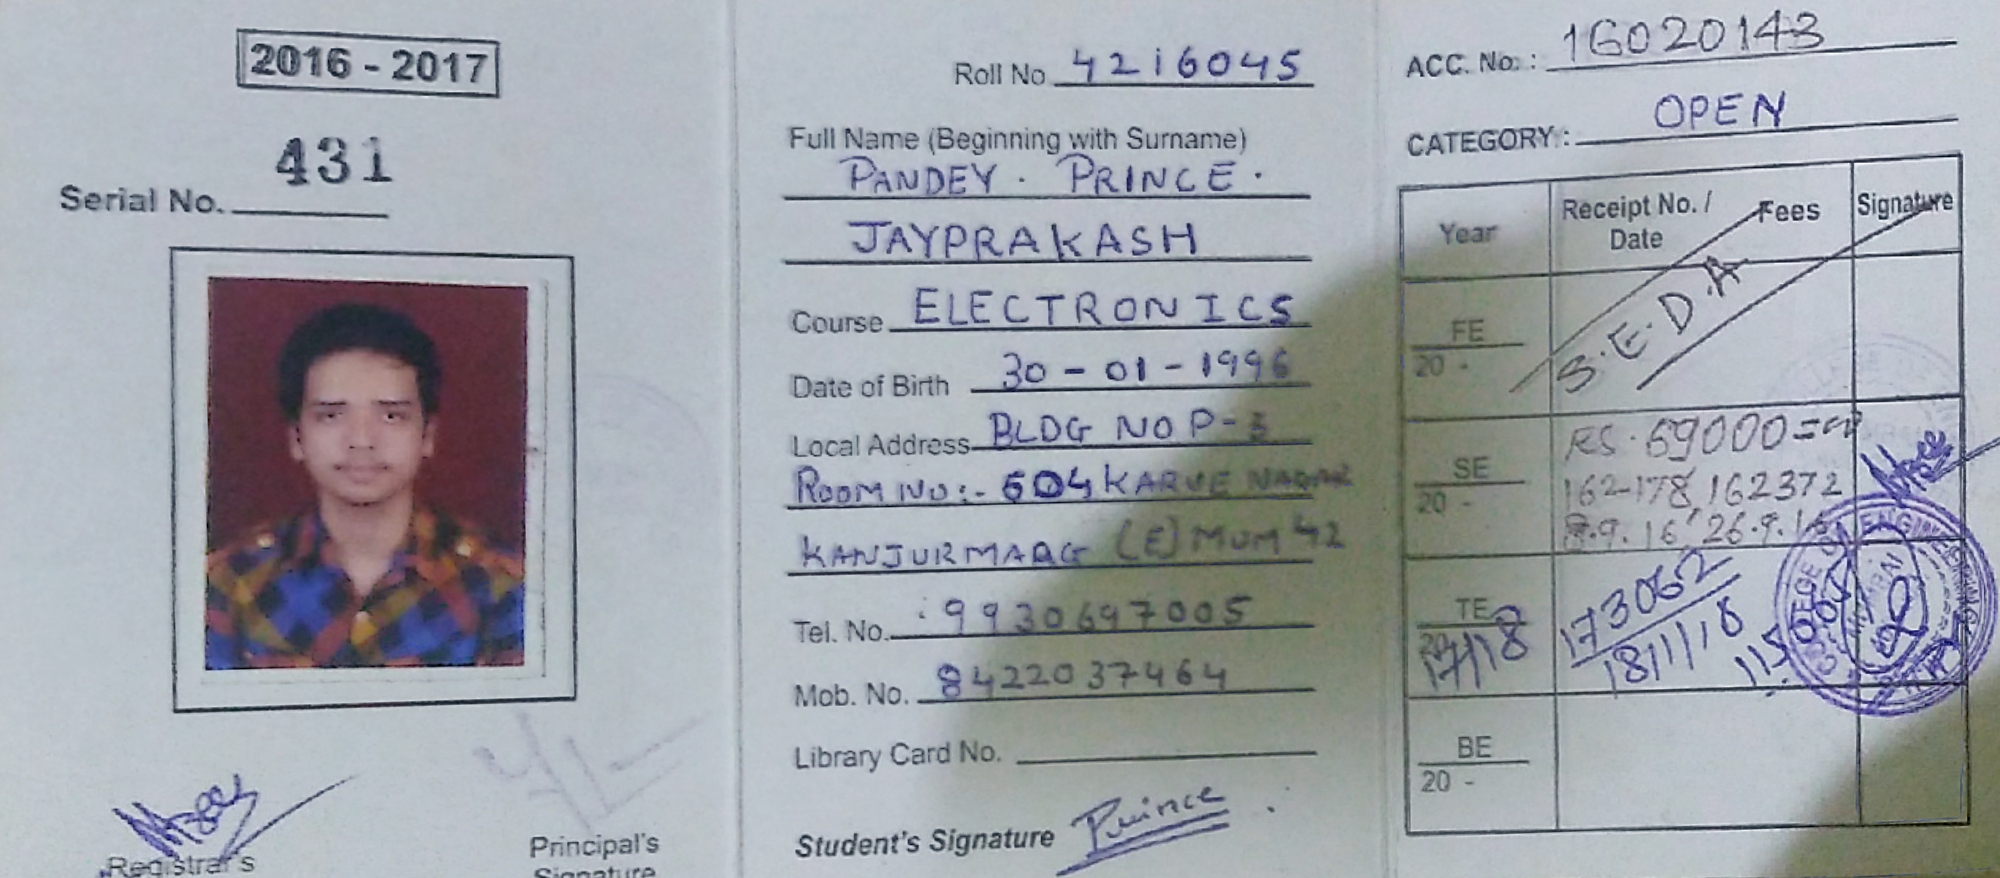 2016 - 2017
431
Serial No.
Registrar's
Principal's
Signature
Roll No 4216045
Full Name (Beginning with Surname)
PANDEY . PRINCE .
JAYPRAKASH
Course ELECTRONICS
Date of Birth 30 - 01 - 1996
Local Address BLDG NO P-3
ROOM NO :- 604 KARVE NAGAR
KANJURMARG (E) MUM 42
Tel. No. 9930697005
Mob. No. 8422037464
Library Card No.
Student's Signature Prince
ACC. No. : 16020143
CATEGORY : OPEN
Year Receipt No. / Date Fees Signature
FE
20 -
S.E.D.A
RS. 69000=00
SE 162178, 162372
20 - 26.9.16
TE 173062
17/18 18/1/18
BE
20 -
COLLEGE OF ENGINEERING